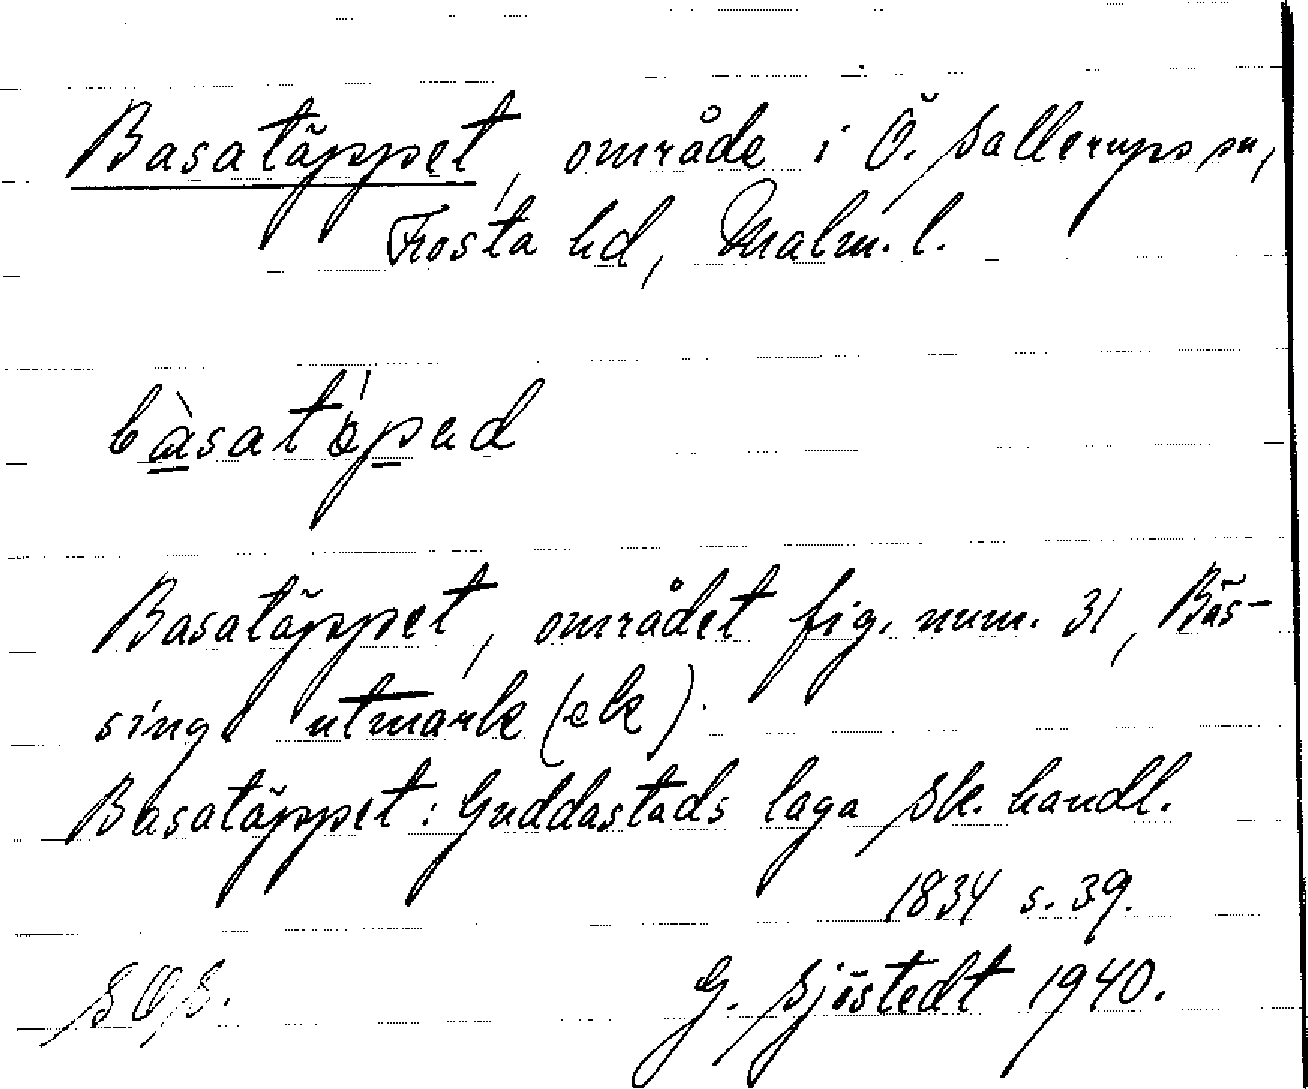 Basatäppet, område i Ö. Sallerups sn,
Frosta hd, Malm. l.
bàsatápad
Basatäppet, området fig. num. 31, Bäs-
singe utmark (ek).
Basatäppet: Guddastads laga sk. handl.
1834 s. 39.
SOS. G. Sjöstedt 1940.